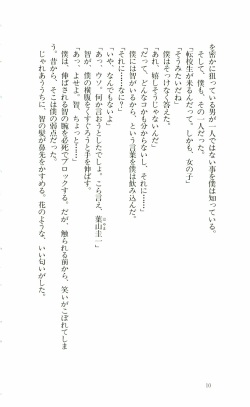 を密かに狙っている男が一人ではない事を僕は知っている。
そして、僕も、その一人だった。
「転校生が来るんだって。しかも、女の子」
「そうみたいだね」
僕はそっけなく答えた。
「あれ、嬉しそうじゃないんだ」
「だって、どんなコかも分からないし、それに……」
僕には智がいるから、という言葉を僕は飲み込んだ。
「それに……なに?」
「いや、なんでもないよ」
「あっ、ウソ。何か言おうとしたでしょ。こら言え、葉山圭一」
智が、僕の横腹をくすぐろうと手を伸ばす。
「あっ、よせよ。智、ちょっと……」
僕は、伸ばされる智の腕を必死でブロックする。だが、触られる前から、笑いがこぼれてしま
う。昔から、そこは僕の弱点だった。
じゃれあううちに、智の髪が鼻先をかすめる。花のような、いい匂いがした。
10